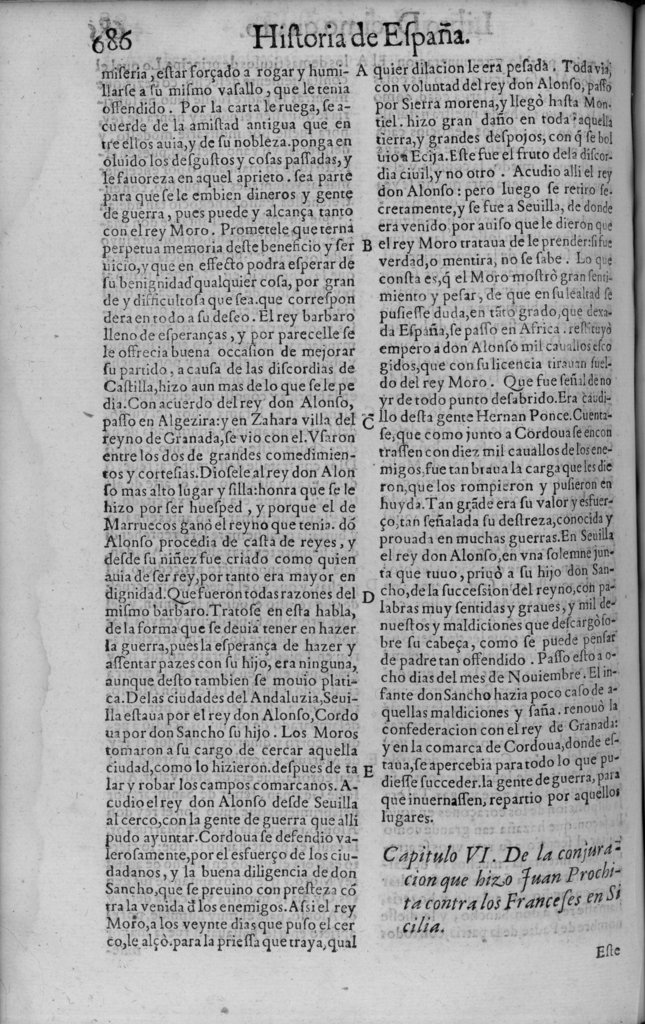 686
Historia de España.
miseria, estar forçado a rogar y humi-
llarse a su mismo vasallo, que le tenia
offendido. Por la carta le ruega, se a-
cuerde de la amistad antigua que en
tre ellos auia, y de su nobleza. ponga en
oluido los desgustos y cosas passadas, y
le fauoreza en aquel aprieto. sea parte
para que se le embien dineros y gente
de guerra, pues puede y alcança tanto
con el rey Moro. Prometele que terna
perpetua memoria deste beneficio y ser
uicio, y que en effecto podra esperar de
su benignidad qualquier cosa, por gran
de y difficultosa que sea. que correspon
dera en todo a su deseo. El rey barbaro
lleno de esperanças, y por parecelle se
le offrecia buena occasion de mejorar
su partido, a causa de las discordias de
Castilla, hizo aun mas de lo que se le pe
dia. Con acuerdo del rey don Alonso,
passo en Algezira: y en Zahara villa del
reyno de Granada, se vio con el. Vsaron
entre los dos de grandes comedimien-
tos y cortesias. Diosele al rey don Alon
so mas alto lugar y silla: honra que se le
hizo por ser huesped, y porque el de
Marruecos ganó el reyno que tenia. dõ
Alonso procedia de casta de reyes, y
desde su niñez fue criado como quien
auia de ser rey, por tanto era mayor en
dignidad. Que fueron todas razones del
mismo barbaro. Tratose en esta habla,
de la forma que se deuia tener en hazer
la guerra, pues la esperança de hazer y
assentar pazes con su hijo, era ninguna,
aunque desto tambien se mouio plati-
ca. Delas ciudades del Andaluzia, Seui-
lla estaua por el rey don Alonso, Cordo
ua por don Sancho su hijo. Los Moros
tomaron a su cargo de cercar aquella
ciudad, como lo hizieron. despues de ta
lar y robar los campos comarcanos. A-
cudio el rey don Alonso desde Seuilla
al cerco, con la gente de guerra que alli
pudo ayuntar. Cordoua se defendio va-
lerosamente, por el esfuerço de los ciu-
dadanos, y la buena diligencia de don
Sancho, que se preuino con presteza cõ
tra la venida đ los enemigos. Assi el rey
Moro, a los veynte dias que puso el cer
co, le alçò. para la priessa que traya, qual
A
B
C
D
E
quier dilacion le era pesada. Toda via,
con voluntad del rey don Alonso, passo
por Sierra morena, y llegò hasta Mon-
tiel. hizo gran daño en toda aquella
tierra, y grandes despojos, con q̃ se bol
uio a Ecija. Este fue el fruto dela discor-
dia ciuil, y no otro. Acudio alli el rey
don Alonso: pero luego se retiro se-
cretamente, y se fue a Seuilla, de donde
era venido por auiso que le dieron que
el rey Moro trataua de le prender: si fue
verdad, o mentira, no se sabe. Lo que
consta es, q̃ el Moro mostrò gran senti-
miento y pesar, de que en su lealtad se
pusiesse duda, en tãto grado, que dexa-
da España, se passo en Africa. restituyò
empero a don Alonso mil cauallos esco
gidos, que con su licencia tirauan suel-
do del rey Moro. Que fue señal de no
yr de todo punto desabrido. Era caudi-
llo desta gente Hernan Ponce. Cuenta-
se, que como junto a Cordoua se encon
trassen con diez mil cauallos de los ene-
migos, fue tan braua la carga que les die
ron, que los rompieron y pusieron en
huyda. Tan grãde era su valor y esfuer-
ço, tan señalada su destreza, conocida y
prouada en muchas guerras. En Seuilla
el rey don Alonso, en vna solemne jun-
ta que tuuo, priuò a su hijo don San-
cho, de la succession del reyno, con pa-
labras muy sentidas y graues, y mil de-
nuestos y maldiciones que descargò so-
bre su cabeça, como se puede pensar
de padre tan offendido. Passo esto a o-
cho dias del mes de Nouiembre. El in-
fante don Sancho hazia poco caso de a-
quellas maldiciones y saña. renouò la
confederacion con el rey de Granada:
y en la comarca de Cordoua, donde es-
taua, se apercebia para todo lo que pu-
diesse succeder. la gente de guerra, para
que inuernassen, repartio por aquellos
lugares.
Capitulo VI. De la conjura-
cion que hizo Juan Prochi-
ta contra los Franceses en Si
cilia.
Este